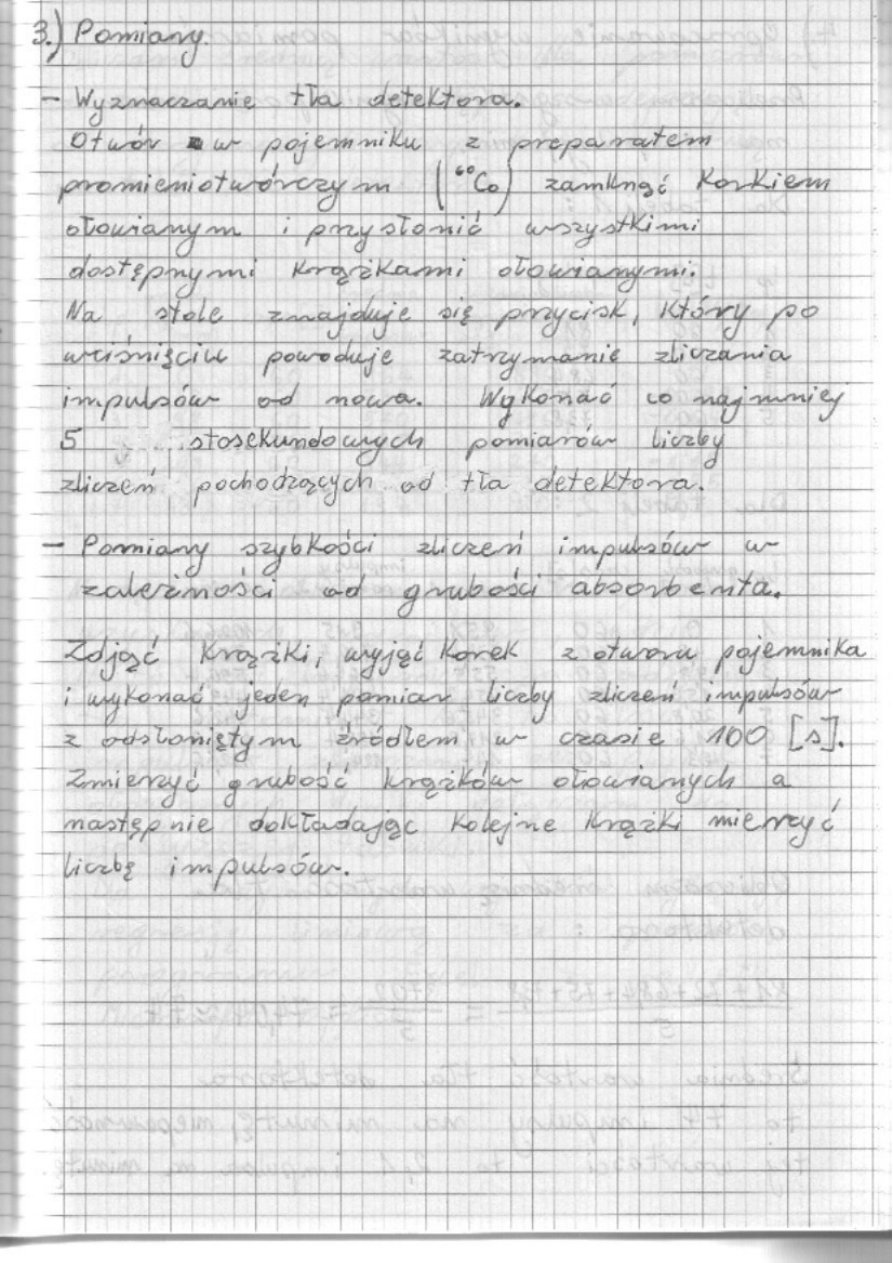 3.) Pomiary.
- Wyznaczanie tła detektora.
Otwór w pojemniku z preparatem
promieniotwórczym (⁶⁰Co) zamknąć korkiem
ołowianym i przysłonić wszystkimi
dostępnymi krążkami ołowianymi.
Na stole znajduje się przycisk, który po
wciśnięciu powoduje zatrzymanie zliczania
impulsów od nowa. Wykonać co najmniej
5 stosekundowych pomiarów liczby
zliczeń pochodzących od tła detektora.
- Pomiary szybkości zliczeń impulsów w
zależności od grubości absorbenta.
Zdjąć krążki, wyjąć korek z otworu pojemnika
i wykonać jeden pomiar liczby zliczeń impulsów
z odsłoniętym źródłem w czasie 100 [s].
Zmierzyć grubość krążków ołowianych a
następnie dokładając kolejne krążki mierzyć
liczbę impulsów.